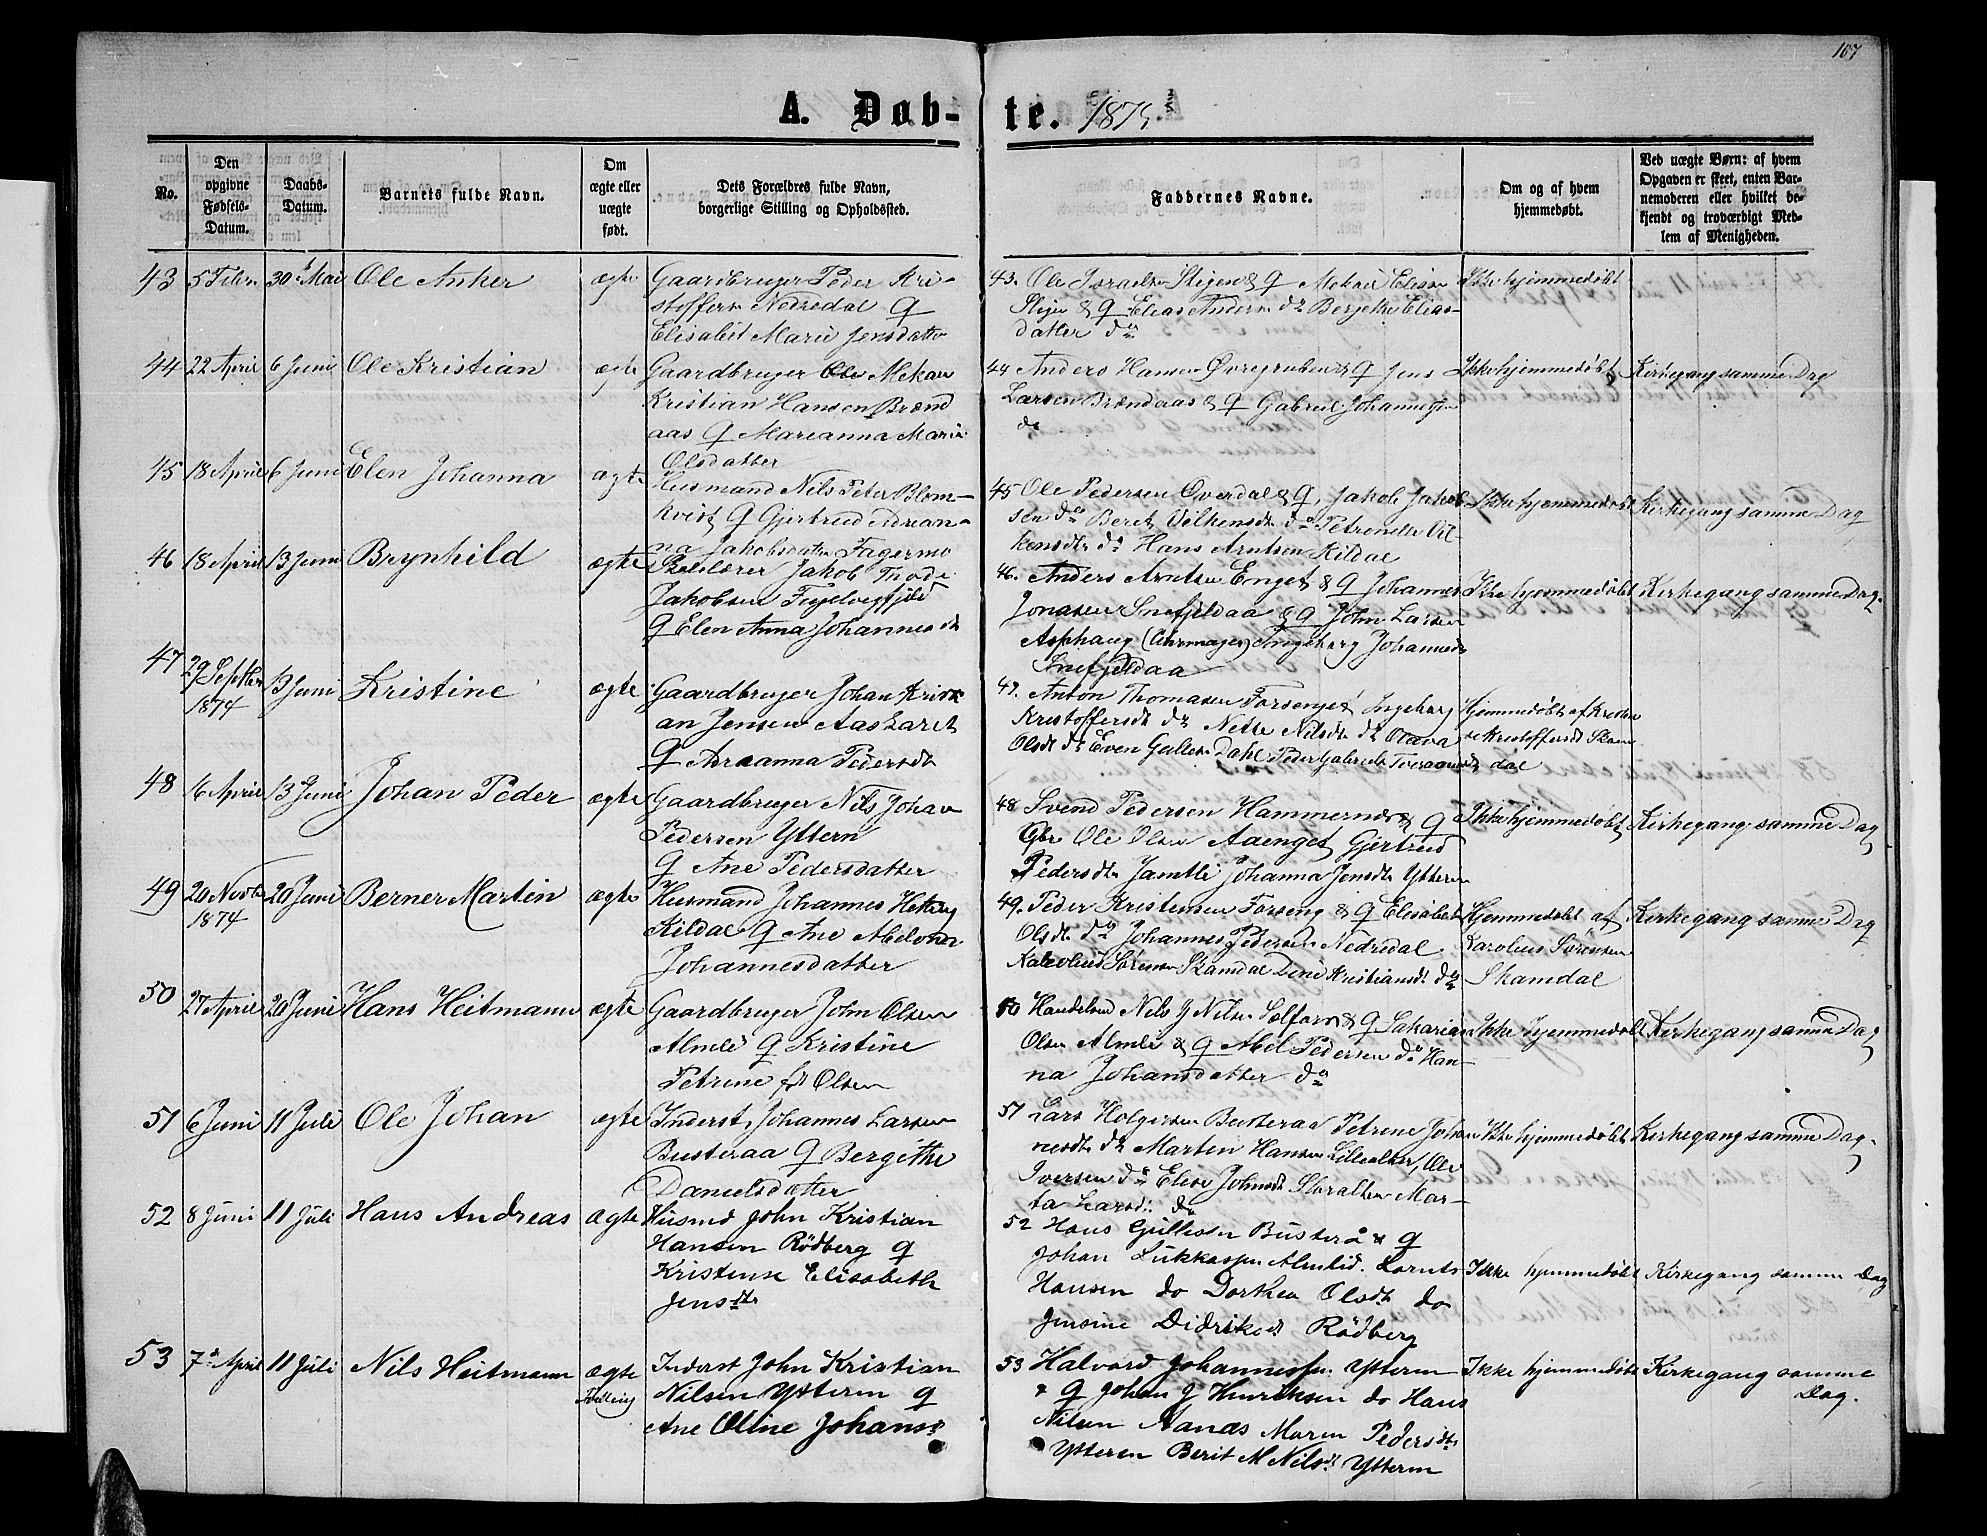 107
A. Døb- te. 1875
No.
Den opgivne Fødsels-Datum.
Daabs-Datum.
Barnets fulde Navn.
Om ægte eller uægte født.
Dets Forældres fulde Navn, borgerlige Stilling og Opholdssted.
Faddernes Navne.
Om og af hvem hjemmedøbt.
Ved uægte Børn: af hvem Opgaven er skeet, enten Barnemoderen eller hvilket bekjendt og troværdigt Medlem af Menigheden.
43 5 Febr. 30 Mai Ole Anker ægte Gaardbruger Peder Kri-
stoffersn Nedredal &
Elisabet Marie Jensdatter
43. Ole Israelsn & Q Mekal Eliasn
& Q Elias Andersn do Elias-
datter do
Ikke hjemmedøbt
44 22 April 6 Juni Ole Kristian ægte Gaardbruger Ole Mekan
Kristian Hansen Brænd
aas Q Marianna Marie
Olsdatter
44 Anders Hansen Øvregruben & Q Jens
Larsen Brændaas & Q Gabriel Johannessn
do
Ikke hjemmedøbt Kirkegang samme Dag
45 18 April 6 Juni Elen Johanna ægte Husmand Nils Peter Blom-
kvist Q Gjertrud Adrian-
na Jakobsdatter Fagermo
45 Ole Pedersen Overdal & Q, Jakob Jakob
sen do Beret Vilkensdt. do Petrenelle Vil-
kensdt. do Hans Arntsen Kildal
Ikke hjemmedøbt Kirkegang samme Dag
46 18 April 13 Juni Brynhild ægte Jakob Tode
Jakobsen
Q Elen Anna Johannesdt
46. Anders Arntsen Enget & Q Johannes
Jonasen Snefjeldaa & Q John Larsen
Asphaug Ingeborg Johannesdt
Snefjeldaa
Ikke hjemmedøbt Kirkegang samme Dag.
47 29 Septbr 1874 13 Juni Kristine ægte Gaardbruger Johan Kristi
an Jensen Aaslaret
Q Adrianna Pedersdt
47. Anton Thomasen Forseng & Ingeborg
Kristoffersdt do Nette Nilsdt do Olava
Olsdt do Even Gullesn Dahl Peder Gabriels
Hjemmedøbt af
Kristoffersdt Skam
dal
48 16 April 13 Juni Johan Peder ægte Gaardbruger Nils Johan
Pedersen Yttern
Q Ane Pedersdatter
48 Svend Pedersen Hammernæs & Q
Gbr Ole Olsen Aaenget Gjertrud
Pedersdt. Jamtli Johanna Jensdt Ytteren
Ikke hjemmedøbt Kirkegang samme Dag
49 20 Novbr 1874 20 Juni Berner Martin ægte Husmand Johannes
Kildal Q Ane Abelone
Johannesdatter
49. Peder Kristensen Forseng & Q Elisabet
Olsdt. do Johannes Pedersen Nedredal
Karolius Sørensn Skamdal Dine Kristiansdt. do
Hjemmedøbt af
Karolius Sørensen
Skamdal
Kirkegang samme Dag
50 27 April 20 Juni Hans Heitmann ægte Gaardbruger John Olsen
Almli Q Kristine
Petrine f Olsen
50 Nils J Nilsn Selfors & Q Sakarias
Olsn Almli & Q Abel Pedersen do Han-
na Johansdatter do
Ikke hjemmedøbt Kirkegang samme Dag
51 6 Juni 11 Juli Ole Johan ægte Inderst, Johannes Larsen
Busteraa Q Bergithe
Danielsdatter
51 Lars Holgersen Busteraa Petrine Johan
nesdt. do Marten Hansen Lillealter, Ole
Iversen do Elise Johnsdt Storalteren Mar-
ta Larsd: do
Ikke hjemmedøbt Kirkegang samme Dag.
52 8 Juni 11 Juli Hans Andreas ægte Husmd John Kristian
Hansen Rödberg Q
Kristense Elisabeth
Jensdtr
52 Hans Gullesen Busterå & Q
Johan Lukkassen Almlid. Lornts
Hansen do Dorthea Olsdt do
Jensine Didriksd. Rödberg
Ikke hjemmedøbt Kirkegang samme Dag
53 7 April 11 Juli Nils Heitmann ægte
Tvilling
Inderst John Kristian
Nilsen Ytteren Q
Ane Oline Johansd
53 Halvard Johannessn. Ytteren
& Q Johan J Henriksen do Hans
Nilsen Aanæs Maren Pedersdtr
Ytteren Berit M Nilsd. Ytteren
Ikke hjemmedøbt Kirkegang samme
Dag.